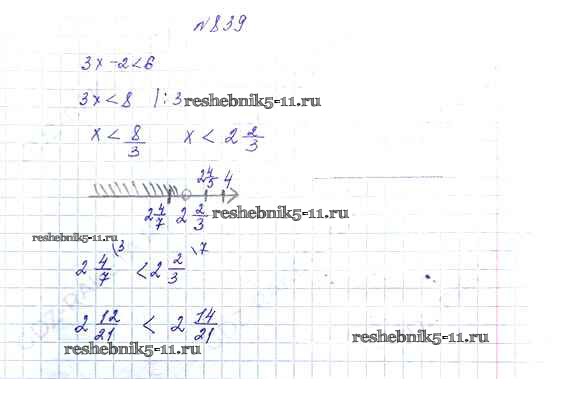 №839
3x-2<6
3x<8 |:3 reshebnik5-11.ru
x < 8/3 x < 2 2/3
2 4/5 4
2 4/7 2 2/3 reshebnik5-11.ru
reshebnik5-11.ru
2 4/7 \3 < 2 2/3 \7
2 12/21 < 2 14/21
reshebnik5-11.ru reshebnik5-11.ru